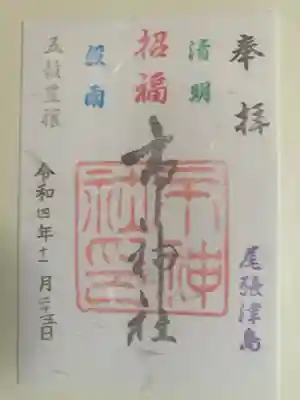 奉拝
清明
招福
穀雨
五穀豊穣
尾張津島
市神社
令和四年十一月二十五日